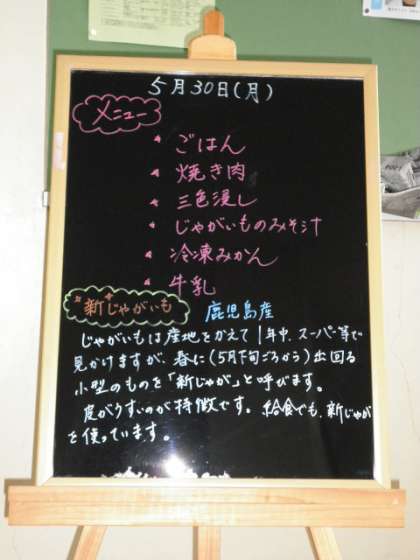 5月30日(月)
メニュー
ごはん
焼き肉
三色浸し
じゃがいものみそ汁
冷凍みかん
牛乳
新じゃがいも 鹿児島産
じゃがいもは産地をかえて1年中、スーパー等で
見かけますが、春に(5月下旬ごろから)出回る
小型のものを「新じゃが」と呼びます。
皮がうすいのが特徴です。給食でも、新じゃが
を使っています。